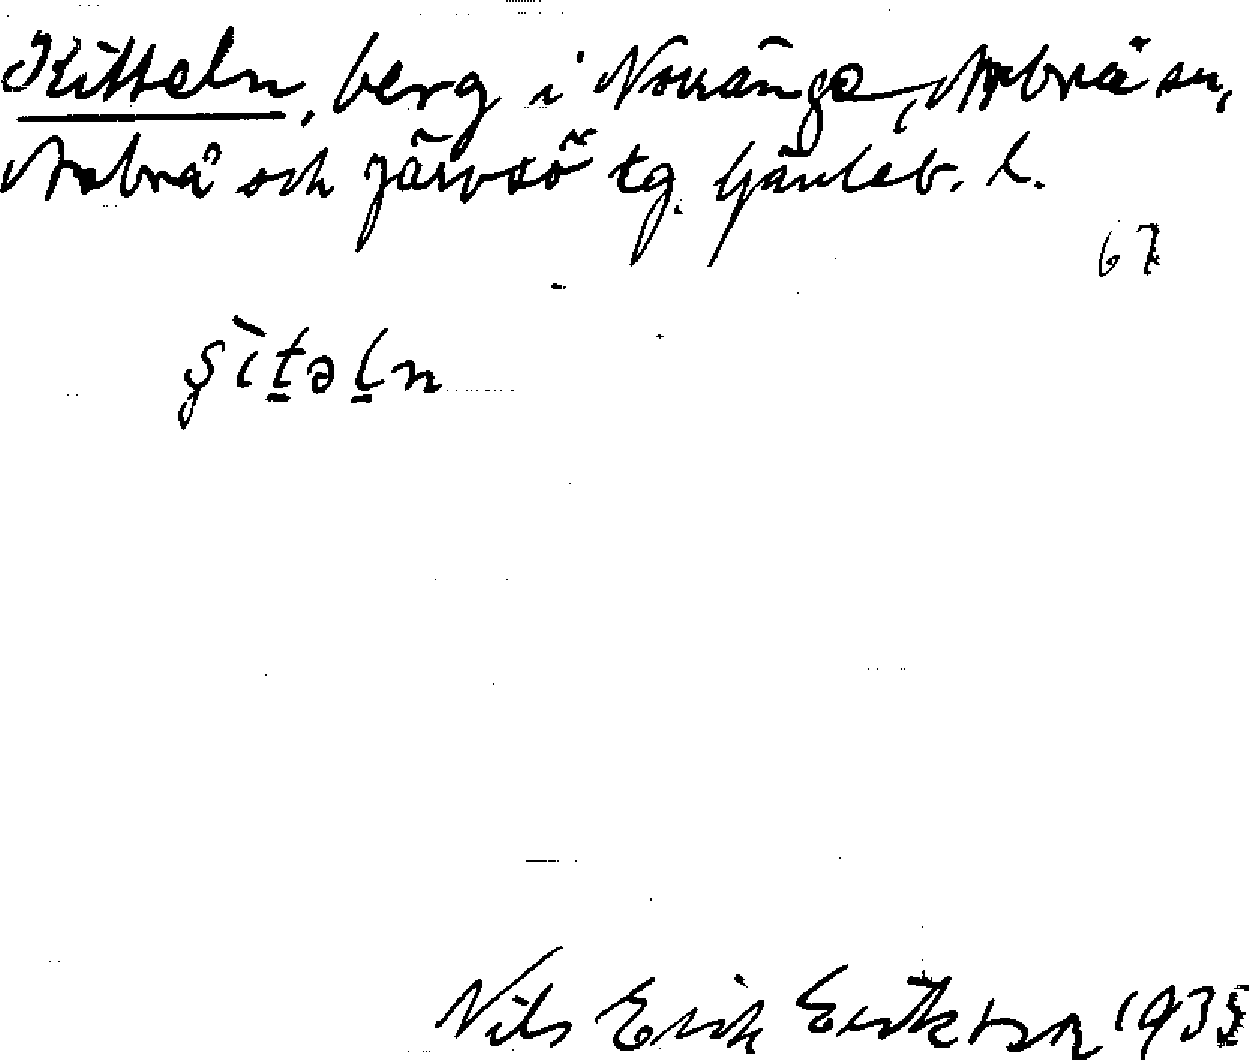 Kitteln, berg i Norränge, Arbrå sn,
Arbrå och Järvsö tg. Gävleb. l.
67
ş̀ìtəln
Nils Erik Eriksson 1935